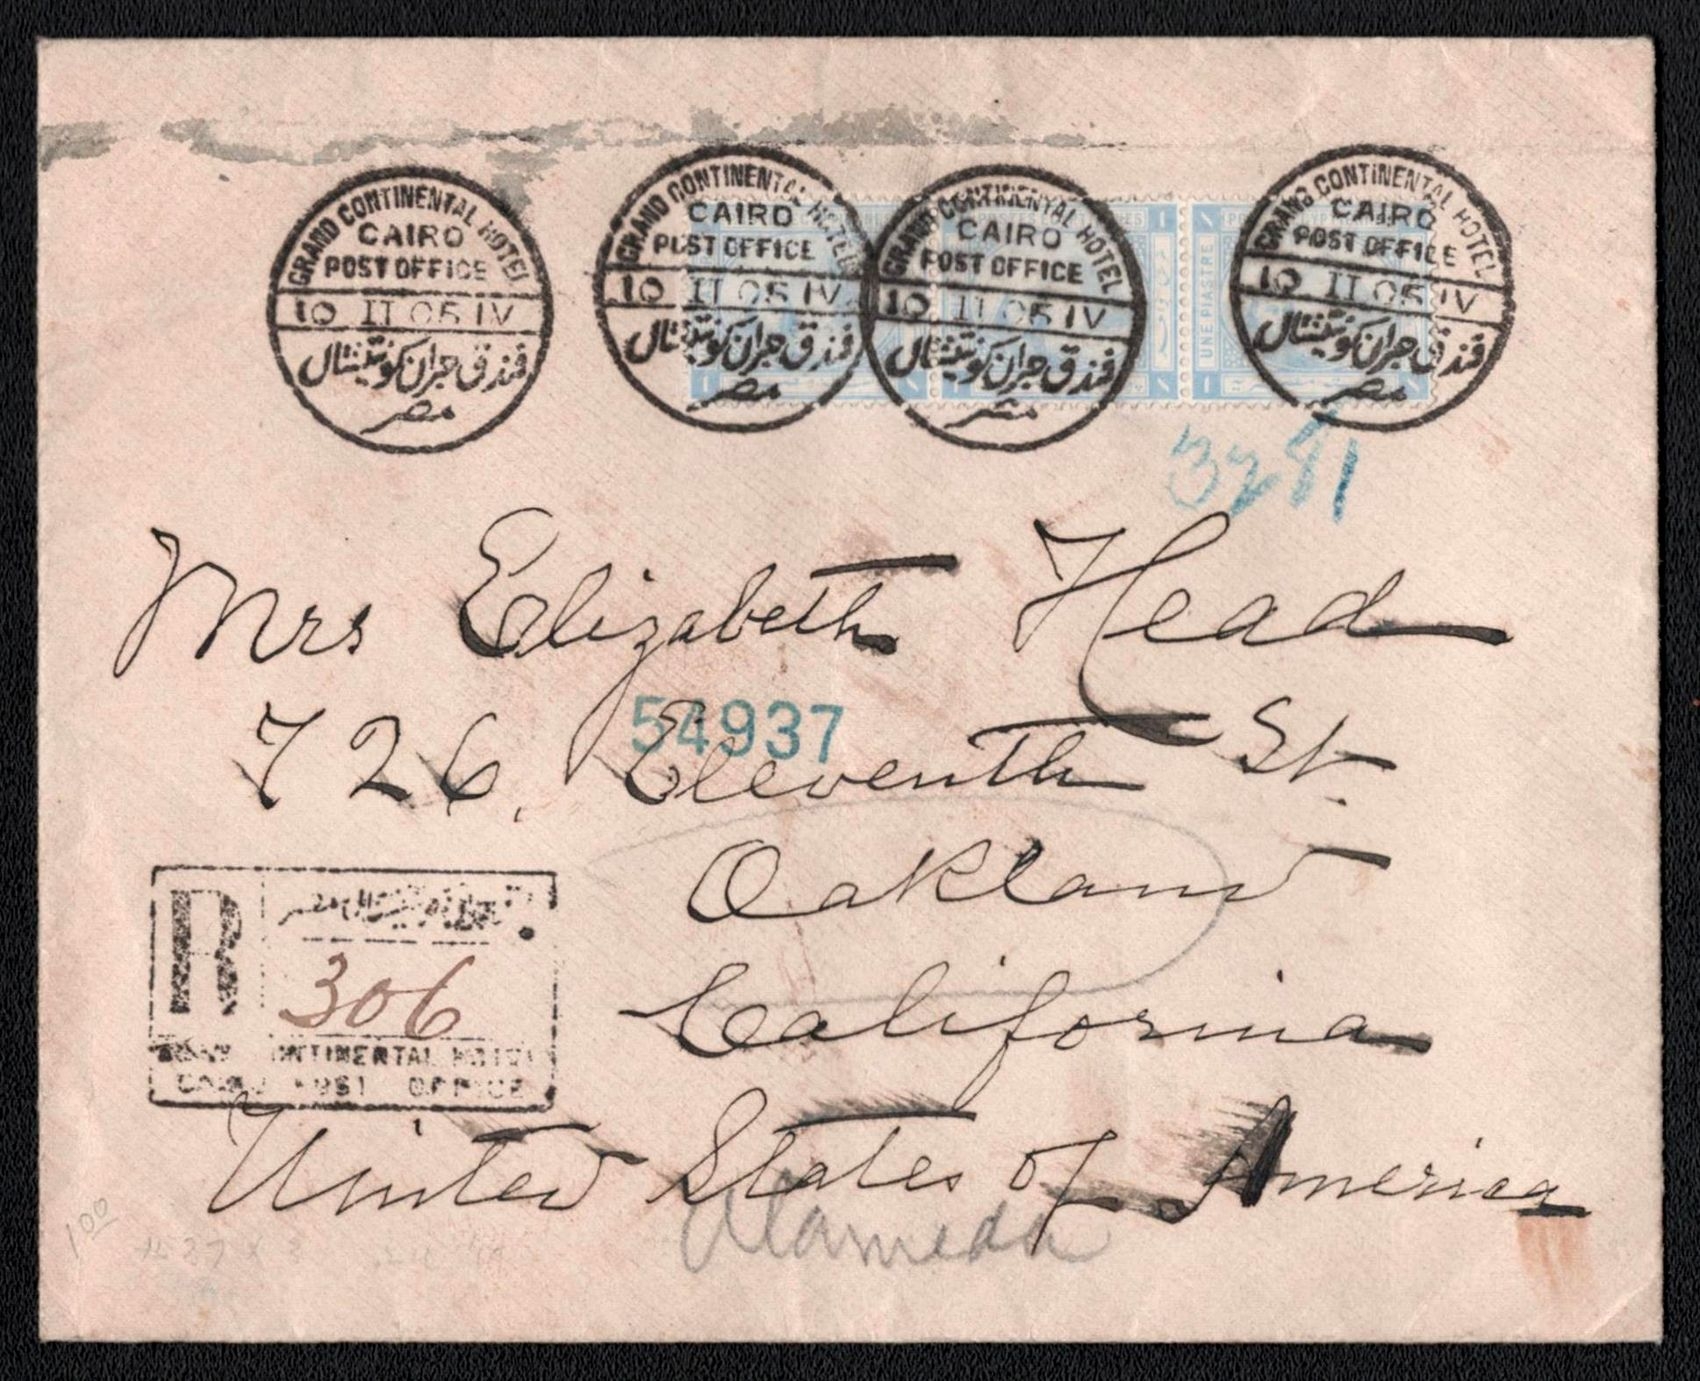 GRAND CONTINENTAL HOTEL
CAIRO
POST OFFICE
10 II 05 IV
فندق جران كونتيننتال
مصر
GRAND CONTINENTAL HOTEL
CAIRO
POST OFFICE
10 II 05 IV
فندق جران كونتيننتال
مصر
GRAND CONTINENTAL HOTEL
CAIRO
POST OFFICE
10 II 05 IV
فندق جران كونتيننتال
مصر
GRAND CONTINENTAL HOTEL
CAIRO
POST OFFICE
10 II 05 IV
فندق جران كونتيننتال
مصر
UNE PIASTRE
Mrs Elizabeth Head
54937
726, Eleventh St.
Oakland
California
United States of America
Alameda
R
306
CONTINENTAL HOTEL
CAIRO POST OFFICE
100